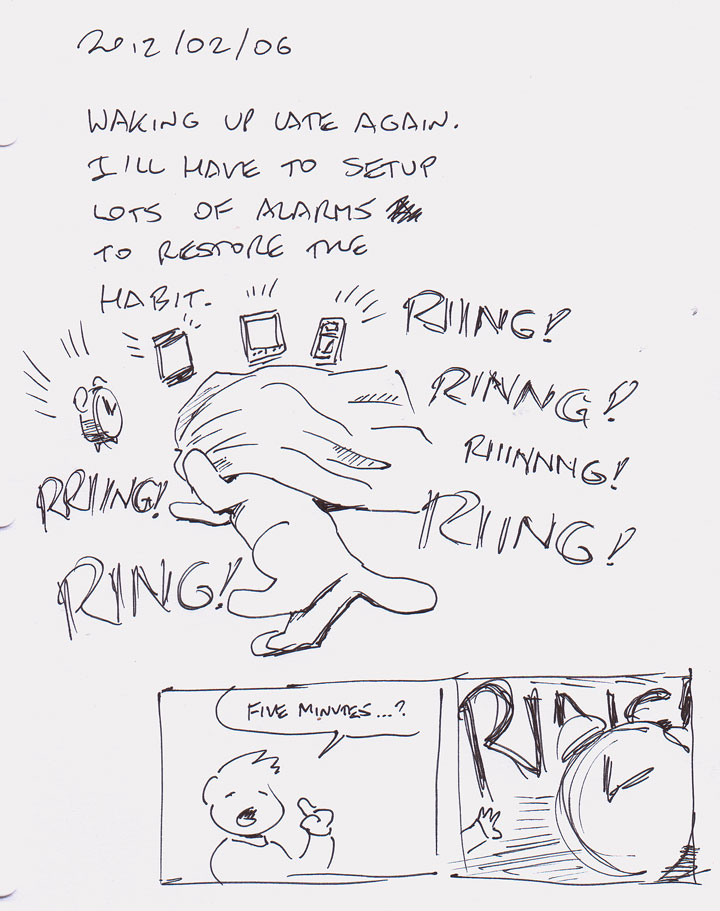 2012/02/06
WAKING UP LATE AGAIN.
I'LL HAVE TO SETUP
LOTS OF ALARMS
TO RESTORE THE
HABIT.
RIIING!
RINNG!
RIIINNNG!
RRIING!
RIING!
RING!
FIVE MINUTES...?
RING!